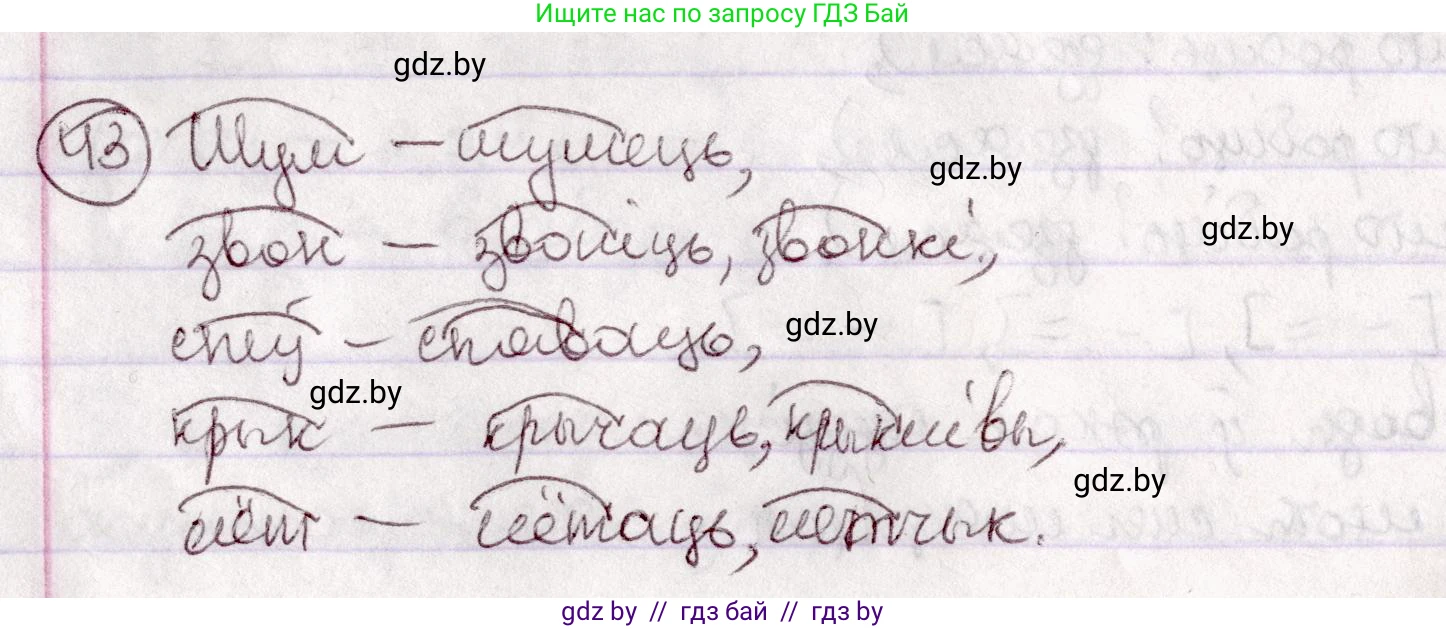 Ищите нас по запросу ГДЗ Бай
gdz.by
43 Шум – шумець,
gdz.by
звон – звоніць, звонкі,
gdz.by
спеў – спяваць,
gdz.by
gdz.by
крык – крычаць, крыклівы,
gdz.by
лёт – лётаць, лётчык.
gdz.by // гдз бай // гдз by